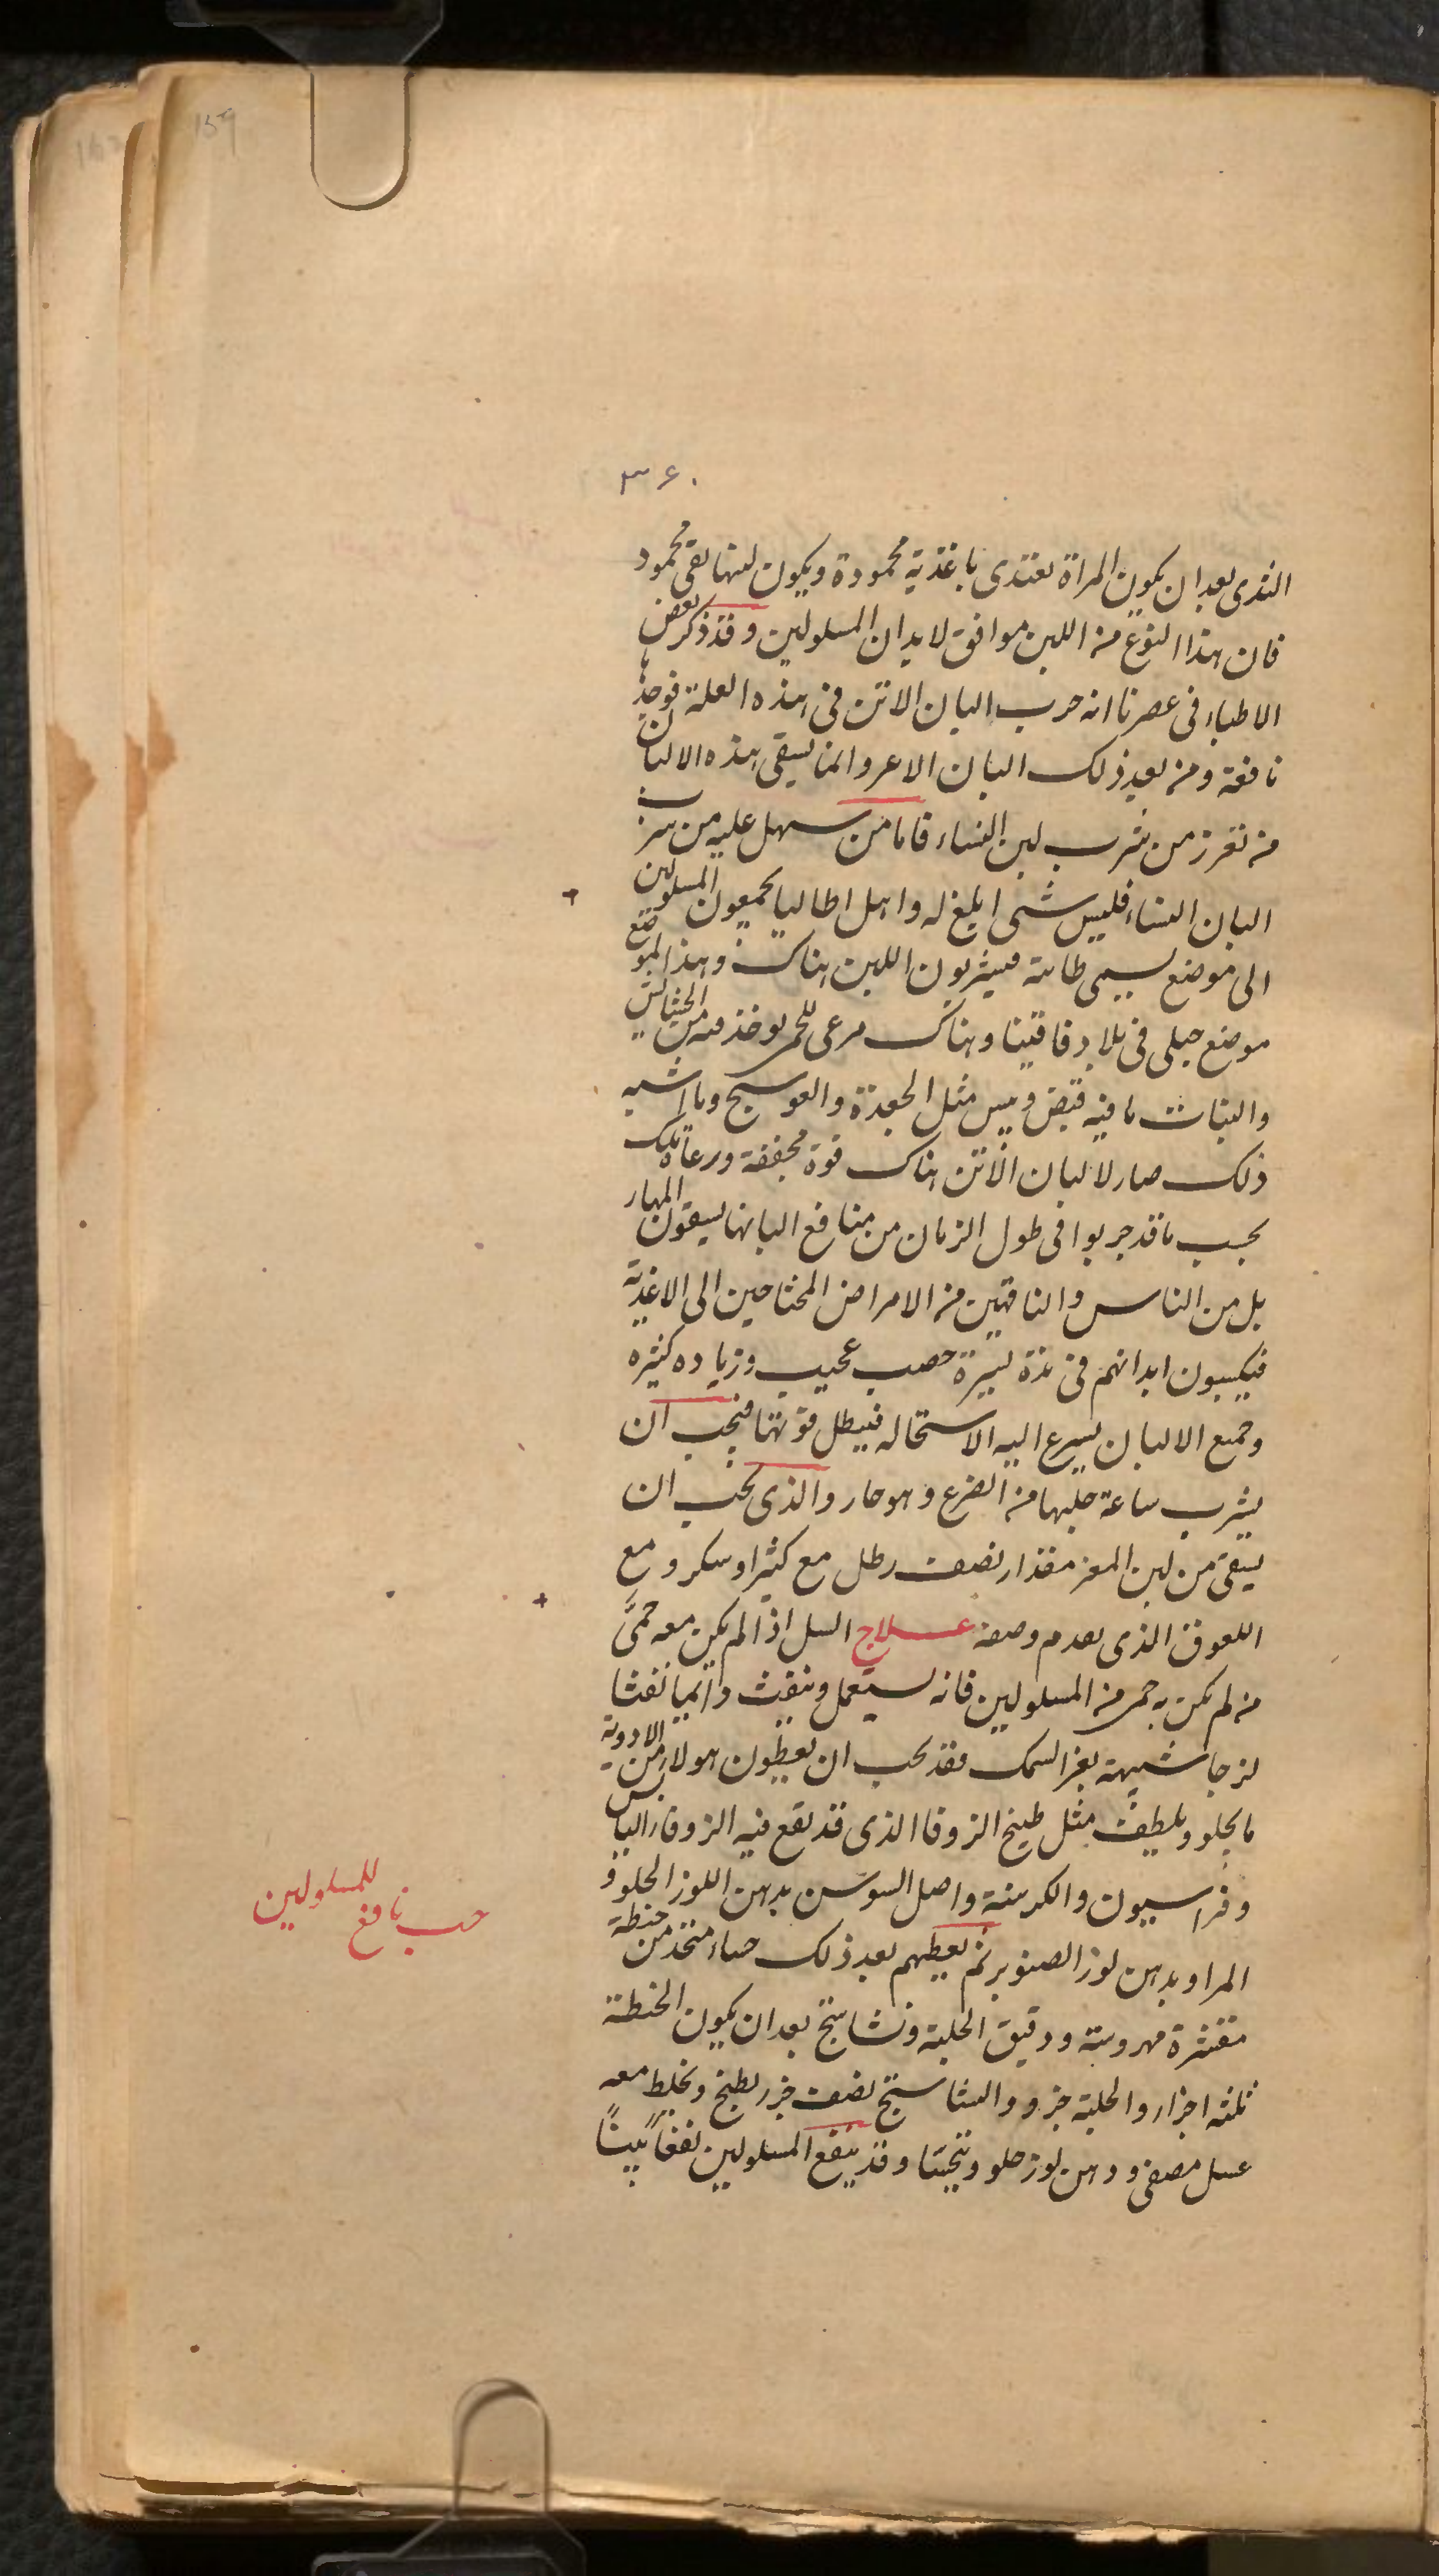 159
٣٦٠
الثدى بعد ان يكون المراة تغتدى باغذية محمودة ويكون لبنها نقى محمود
فان هذا النوع من اللبن موافق لابدان المسلولين وقد ذكر بعض
الاطباء فى عصرنا انه جرب البان الاتن فى هذه العلة فوجدها
نافعة ومن بعد ذلك البان الاعز وانما يسقى هذه الالبان
من تقزز من شرب لبن النساء فاما من سهل عليه من شرب
البان النساء فليس شى ابلغ له واهل اطاليا يجمعون المسلولين
الى موضع يسمى طابية فيشربون اللبن هناك وهذا الموضع
موضع جبلى فى بلاد قاقينا وهناك مرعى للحمر يوخذ فيه من الحشائش
والنبات ما فيه قبض ويبس مثل الجعدة والعوسج وما اشبه
ذلك صار لالبان الاتن هناك قوة مجففة ورعاة تلك
بحسب ما قد جربوا فى طول الزمان من منافع البانها يسقون المهازيل
بل من الناس والناقهين من الامراض المحتاجين الى الاغذية
فيكسبون ابدانهم فى مدة يسيرة خصب عجيب وزياده كثيره
وجميع الالبان يسرع اليه الاستحاله فيبطل قوتها فيجب ان
يشرب ساعة حلبها من الضرع وهو حار والذى يجب ان
يسقى من لبن المعز مقدار نصف رطل مع كثيرا وسكر ومع
اللعوق الذى تقدم وصفه علاج السل اذا لم يكن معه حمى
من لم يكن به حمى من المسلولين فانه يستعمل وينفث دائما نفثا
لزجا شبيهة بغرا السمك فقد يجب ان يعطون هولاء من الادوية
ما يجلو ويلطف مثل طبيخ الزوفا الذى قد يقع فيه الزوفا اليابس
وفراسيون والكرسنة واصل السوسن بدهن اللوز الحلو و
المر او بدهن لوز الصنوبر ثم يعطيهم بعد ذلك حساء متخذ من حنطة
مقشرة مهروسة ودقيق الحلبة ونشاستج بعد ان يكون الحنطة
ثلثه اجزاء والحلبة جزو والنشاستج نصف جزء يطبخ ويخلط معه
عسل مصفى ودهن لوز حلو ويتحسا وقد ينفع المسلولين نفعا بينا
حب نافع للمسلولين